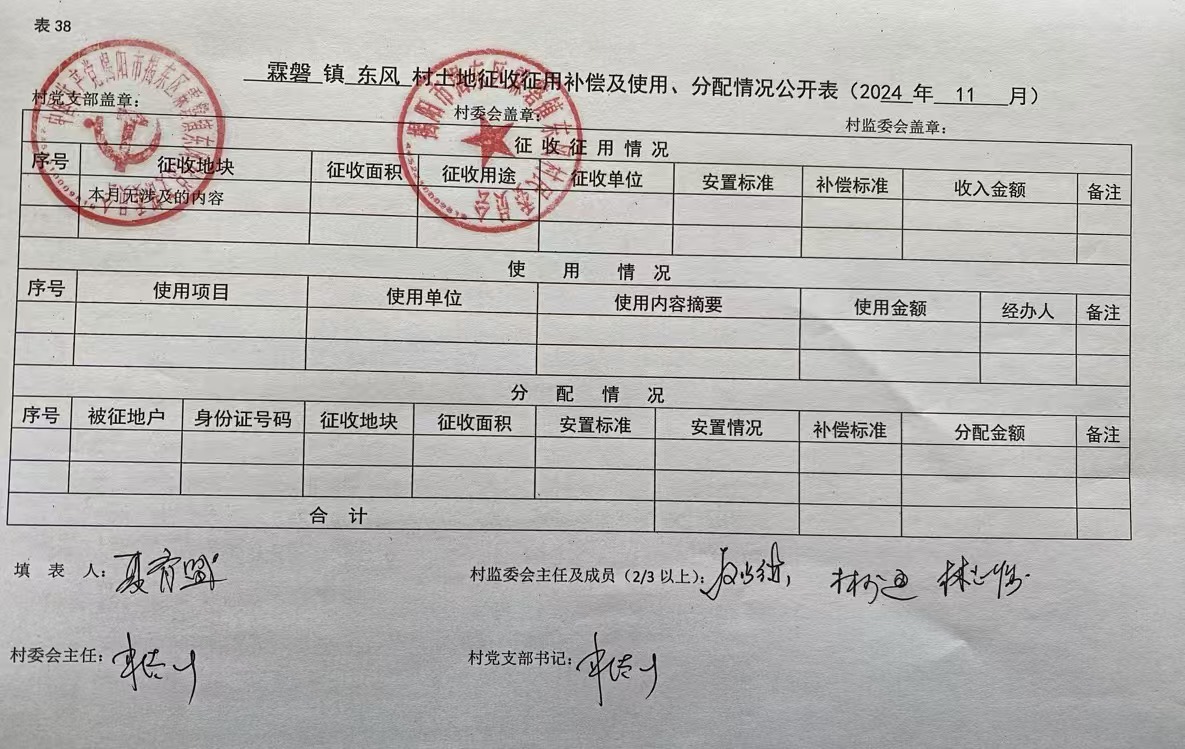 表 38
霖磐 镇 东风 村土地征收征用补偿及使用、分配情况公开表（2024 年 11 月）
村党支部盖章： 村委会盖章： 村监委会盖章：
征 收 征 用 情 况
序号 征收地块 征收面积 征收用途 征收单位 安置标准 补偿标准 收入金额 备注
本月无涉及的内容
使 用 情 况
序号 使用项目 使用单位 使用内容摘要 使用金额 经办人 备注
分 配 情 况
序号 被征地户 身份证号码 征收地块 征收面积 安置标准 安置情况 补偿标准 分配金额 备注
合 计
填 表 人： 村监委会主任及成员（2/3 以上）：
村委会主任： 村党支部书记：